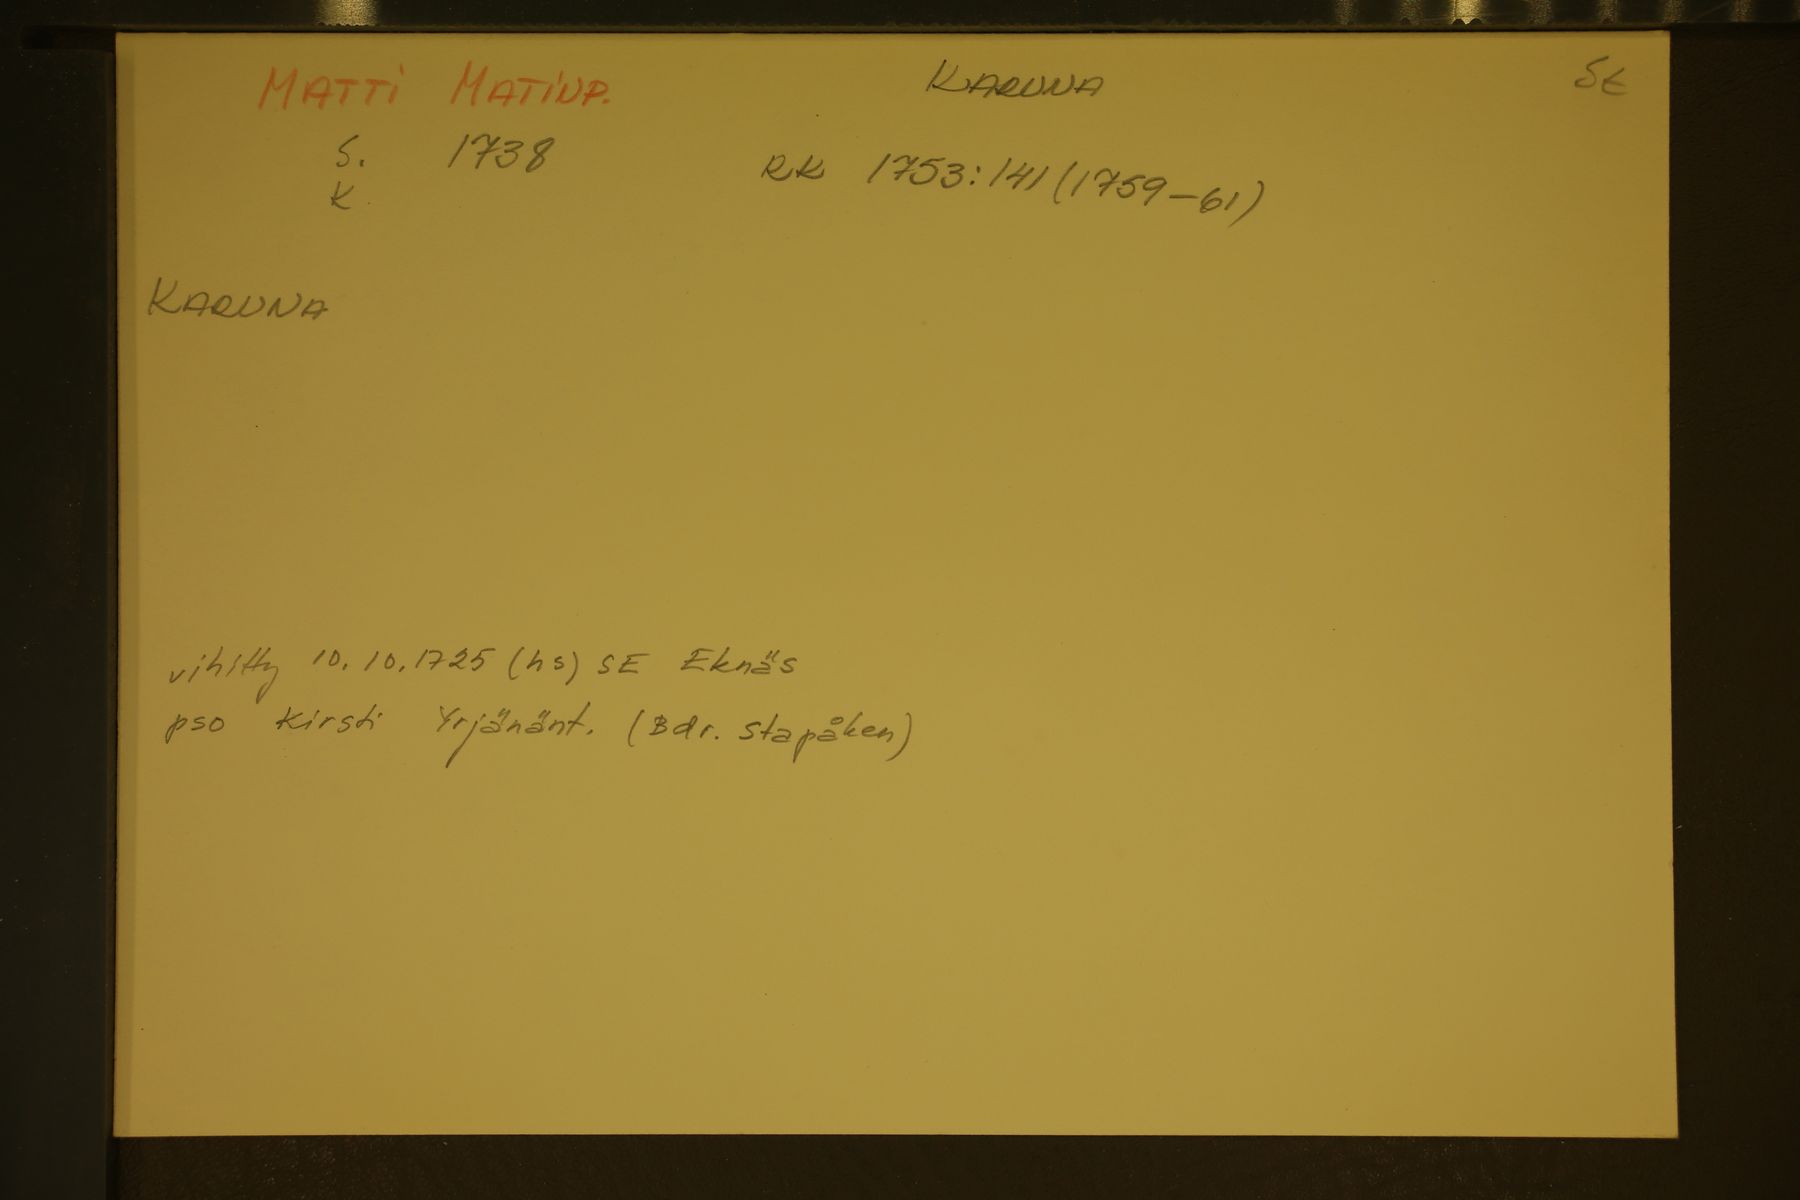 MATTI MATINP. KARUNA SE
S. 1738 RK 1753:141 (1759-61)
K
KARUNA
vihitty 10.10.1725 (hs) SE Eknäs
pso Kirsti Yrjänänt. (Bdr. Stapåken)